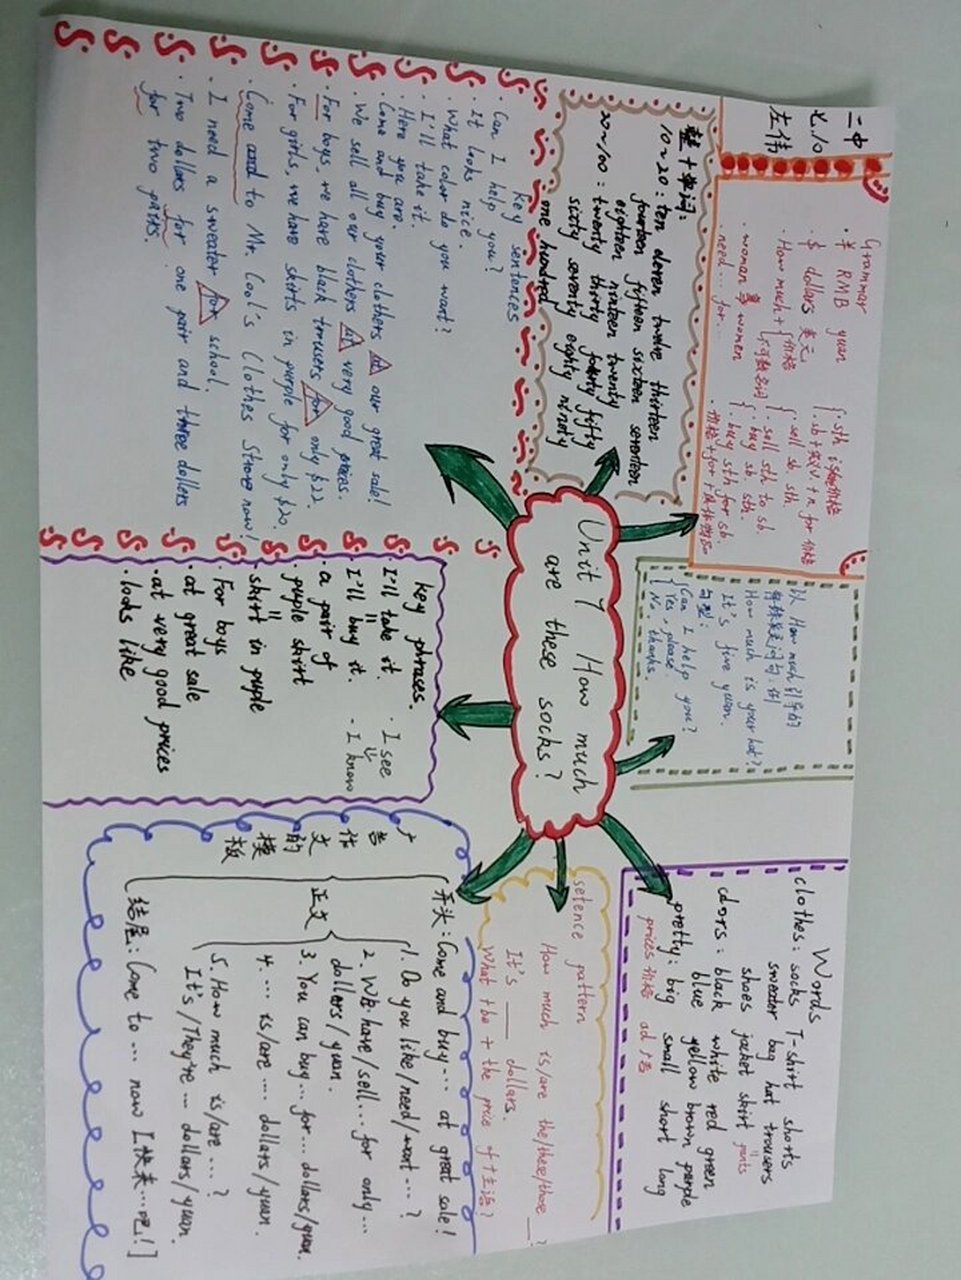 二中
七.10
左伟
Grammar
· ¥ RMB yuan
· $ dollars 美元
· How much + { 价格
不可数名词
· woman 复 women
· need... for...
{ · sth
· sb + + n for 价格
{ · sell sb. sth.
· sell sth to sb.
{ · buy sb. sth.
· buy sth for sb.
整+单词:
10~20: ten eleven twelve thirteen
fourteen fifteen sixteen seventeen
eighteen nineteen twenty
20~100: twenty thirty fourty fifty
sixty seventy eighty ninety
one hundred
key sentences
· Can I help you?
· It looks nice.
· What color do you want?
· I'll take it.
· Here you are.
· Come and buy your clothes at our great sale!
· We sell all our clothers at very good prices.
· For boys, we have black trusers for only $22.
· For girls, we have skirts in purple for only $20.
· Come and to Mr. Cool's Clothes Strore now!
· I need a sweater for school.
· Two dollars for one pair and three dollers
for two pairs.
Unit 7 How much
are these socks?
以 How much 引导的
特殊疑问句:例
How much is your hat?
It's five yuan.
句型:
Can I help you?
{ Yes, please.
No, thanks.
key phrases.
I'll take it. · I see
I'll buy it. · I know
· a pair of
· puple skirt
· skirt in puple
· For boys
· at great sale
· at very good prices
· looks like
Words
clothes: socks T-shirt shorts
sweater bag hat trousers
shoes jacket skirt pants
colors: black white red green
blue yellow brown purple
pretty: big small short long
prices 价格 ad 广告
setence pattern
How much is/are the/these/those ___?
It's ___ dollars.
What + be + the price of + 主语?
广告作文的模板
开头: Come and buy ... at great sale!
正文
1. Do you like/need/want ...?
2. We have/sell... for only ...
dollers/yuan.
3. You can buy... for... dollars/yuan.
4. ... is/are ... dollars/yuan.
5. How much is/are ...?
It's/They're ... dollars/yuan.
结尾: Come to ... now [快来...吧!]